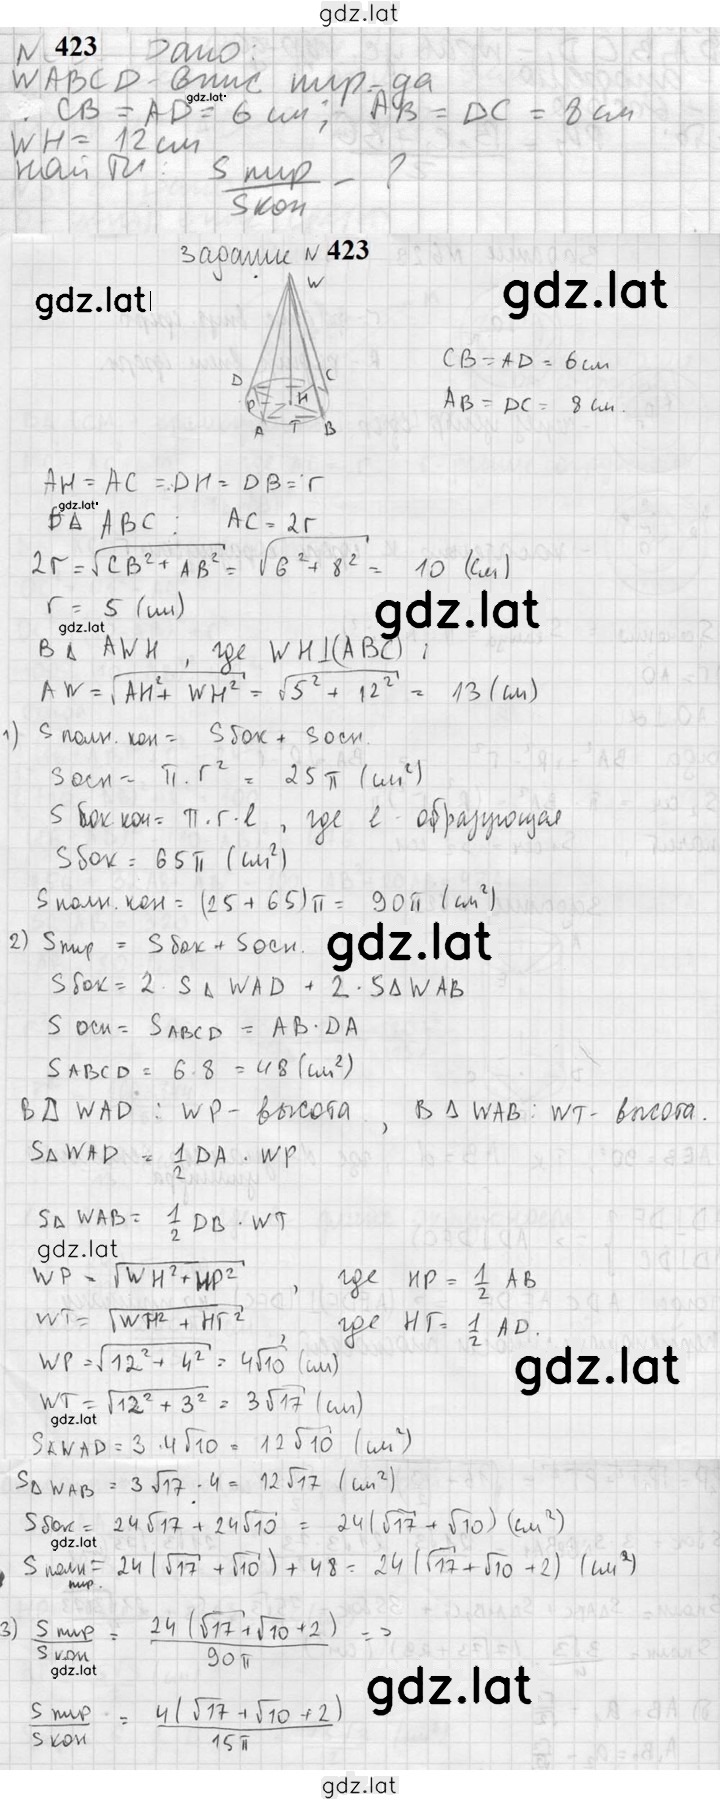 gdz.lat
N 423 Дано:
WABCD - впис пир-да
gdz.lat
CB = AD = 6 см; AB = DC = 8 см
WH = 12 см
найти: Sпир/Sкон - ?
Задание N 423
gdz.lat
gdz.lat
W
D
C
P
H
A
T
B
CB = AD = 6 см
AB = DC = 8 см.
AH = AC = DH = DB = r
gdz.lat
В Δ ABC: AC = 2r
2r = √(CB² + AB²) = √(6² + 8²) = 10 (см)
r = 5 (см)
gdz.lat
gdz.lat
В Δ AWH, где WH⊥(ABC);
AW = √(AH² + WH²) = √(5² + 12²) = 13 (см)
1) Sполн. кон = Sбок + Sосн.
Sосн = π·r² = 25π (см²)
Sбок кон = π·r·l, где l - образующая
Sбок = 65π (см²)
Sполн. кон = (25 + 65)π = 90π (см²)
2) Sпир = Sбок + Sосн.
gdz.lat
Sбок = 2·SΔ WAD + 2·SΔ WAB
Sосн = SABCD = AB·DA
SABCD = 6·8 = 48 (см²)
В Δ WAD: WP - высота, В Δ WAB: WT - высота.
SΔ WAD = 1/2 DA · WP
SΔ WAB = 1/2 DB · WT
gdz.lat
WP = √(WH² + HP²), где HP = 1/2 AB
WT = √(WH² + HT²), где HT = 1/2 AD.
WP = √(12² + 4²) = 4√10 (см)
gdz.lat
WT = √(12² + 3²) = 3√17 (см)
gdz.lat
SΔ WAD = 3·4√10 = 12√10 (см²)
SΔ WAB = 3√17·4 = 12√17 (см²)
Sбок = 24√17 + 24√10 = 24(√17 + √10) (см²)
gdz.lat
Sполн пир. = 24(√17 + √10) + 48 = 24(√17 + √10 + 2) (см²)
3) Sпир/Sкон = 24(√17 + √10 + 2)/90π =>
gdz.lat
gdz.lat
Sпир/Sкон = 4(√17 + √10 + 2)/15π
gdz.lat